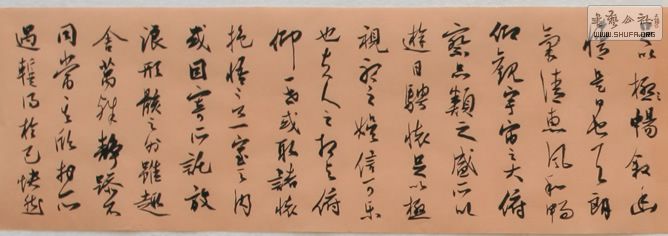 足以極暢叙幽
情是日也天朗
氣清惠風和暢
仰觀宇宙之大俯
察品類之盛所以
遊目騁懷足以極
視聽之娛信可樂
也夫人之相與俯
仰一世或取諸懷
抱悟言一室之内
或因寄所託放
浪形骸之外雖趣
舍萬殊静躁不
同當其欣於所
遇暫得於己快然
WWW.SHUFA.ORG